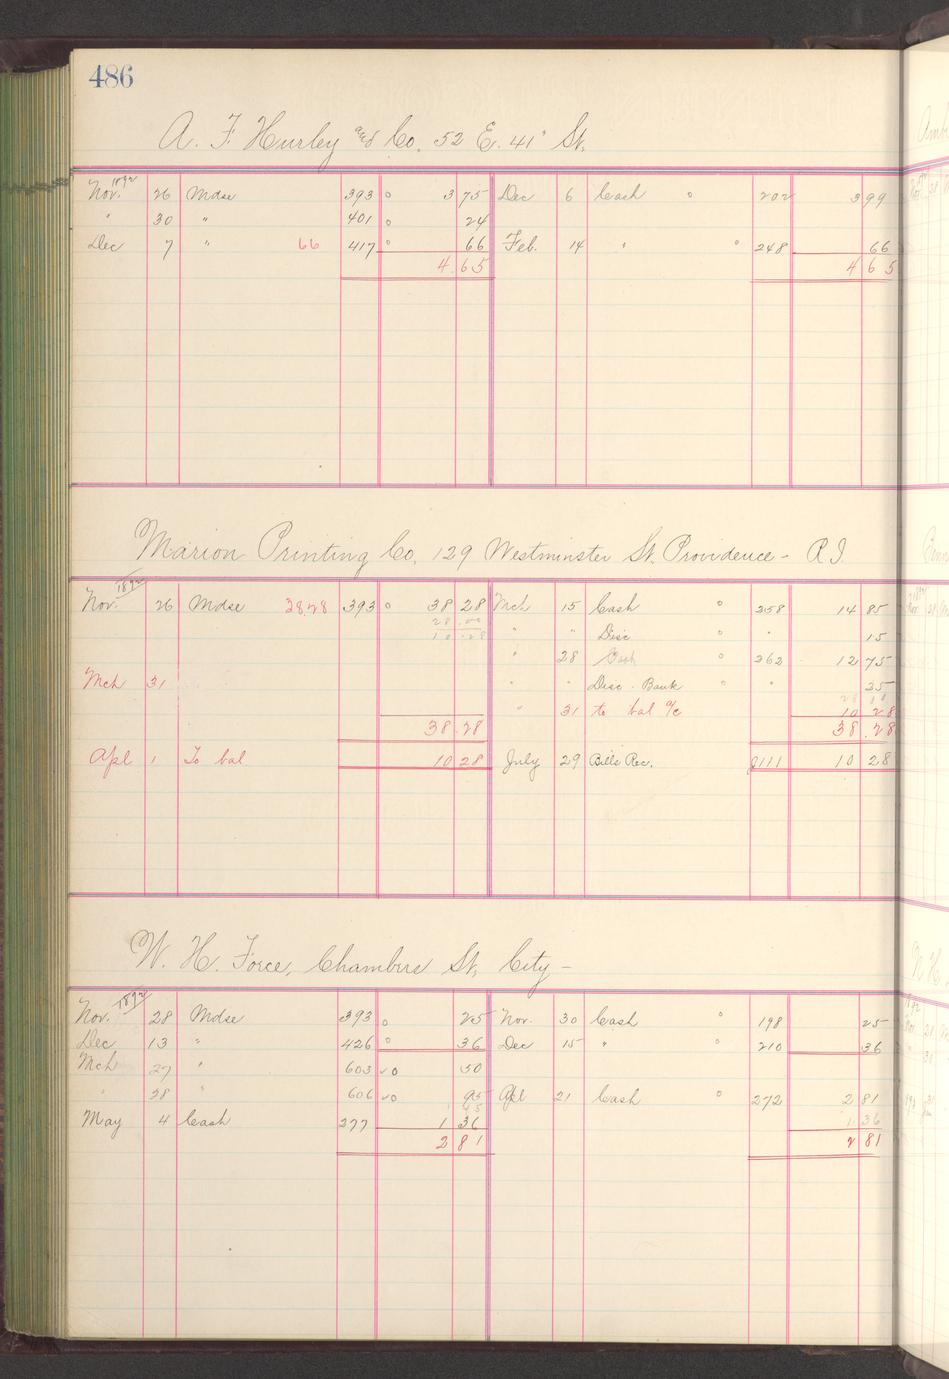 486
A. F. Hurley and Co. 52 E. 41" St.
1892
Nov. 26 Mdse 393 o 3 75 Dec 6 Cash o 202 3 99
" 30 " 401 o 24
Dec 7 " 66 417 o 66 Feb. 14 " o 248 66
4 65 4 65
Marion Printing Co. 129 Westminster St. Providence - R I.
1892
Nov. 26 Mdse 38.28 393 o 38 28 Mch 15 Cash o 258 14 85
28.00
10.28 " " Disc o " 15
" 28 Cash o 262 12 75
Mch 31 " " Disc. Bank o " 25
" 31 to bal a/c 10 28
38.28 38.28
Apl 1 To bal 10 28 July 29 Bills Rec. 111 10 28
W. H. Force, Chambers St, City -
1892
Nov. 28 Mdse 393 o 25 Nov. 30 Cash o 198 25
Dec 13 " 426 o 36 Dec 15 " o 210 36
Mch 27 " 603 o 50
" 28 " 606 o 95 Apl 21 Cash o 272 2 81
May 4 Cash 277 1 36 1 36
2 81 2 81